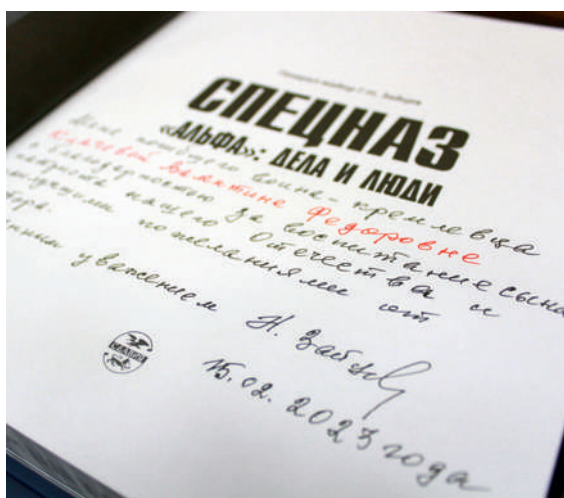 Генерал-майор Г.Н. Зайцев
СПЕЦНАЗ
«АЛЬФА»: ДЕЛА И ЛЮДИ
погибшего воина-кремлевца
Валентине Федоровне
с благодарностью за воспитание сына
нашего Отечества и
пожеланиями от
уважением Н. Зайцев
15.02.2023 года